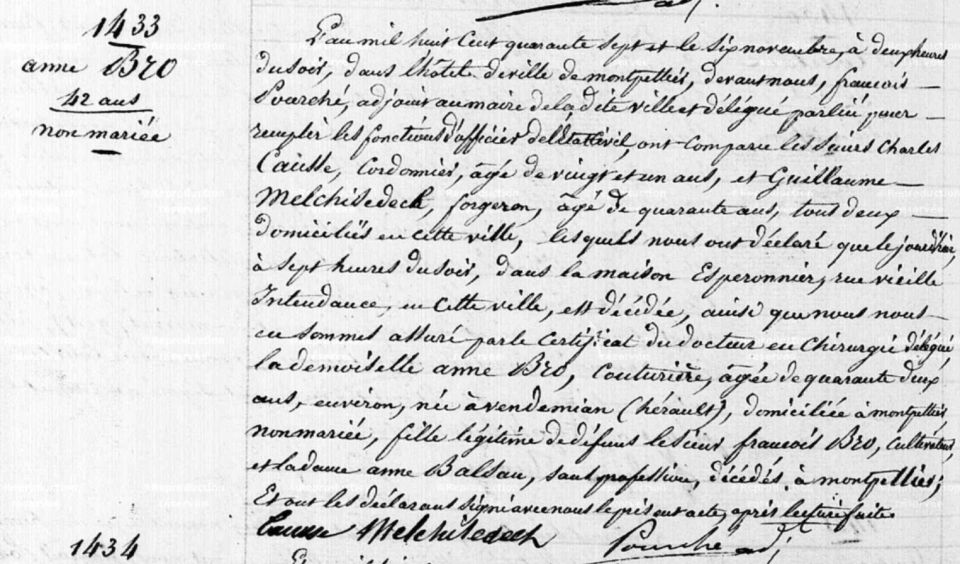 1433
anne Bro
42 ans
non mariée
L'an mil huit Cent quarante sept et le six novembre, à deux heures
du soir, dans l'hôtel de ville de montpellier, devant nous, françois
Pourché, adjoint au maire de la dite ville et délégué par lui pour
remplir les fonctions d'officier de l'État civil, ont comparu les Sieurs Charles
Causse, Cordonnier, âgé de vingt et un ans, et Guillaume
Melchisedech, forgeron, âgé de quarante ans, tous deux
domiciliés en cette ville, lesquels nous ont déclaré que le jour d'hier,
à sept heures du soir, dans la maison Esperonnier, rue vieille
Intendance, en cette ville, est décédée, ainsi que nous nous
en sommes assuré par le certificat du docteur en chirurgie délégué
la demoiselle anne Bro, Couturière, âgée de quarante deux
ans, environ, née à vendemian (hérault), domiciliée à montpellier
non mariée, fille légitime de défuns le sieur françois Bro, cultivateur,
et la dame anne Balsan, sans profession, décédés à montpellier;
Et ont les déclarans signé avec nous le présent acte, après lecture faite
Causse Melchisedech Pourché adj
1434